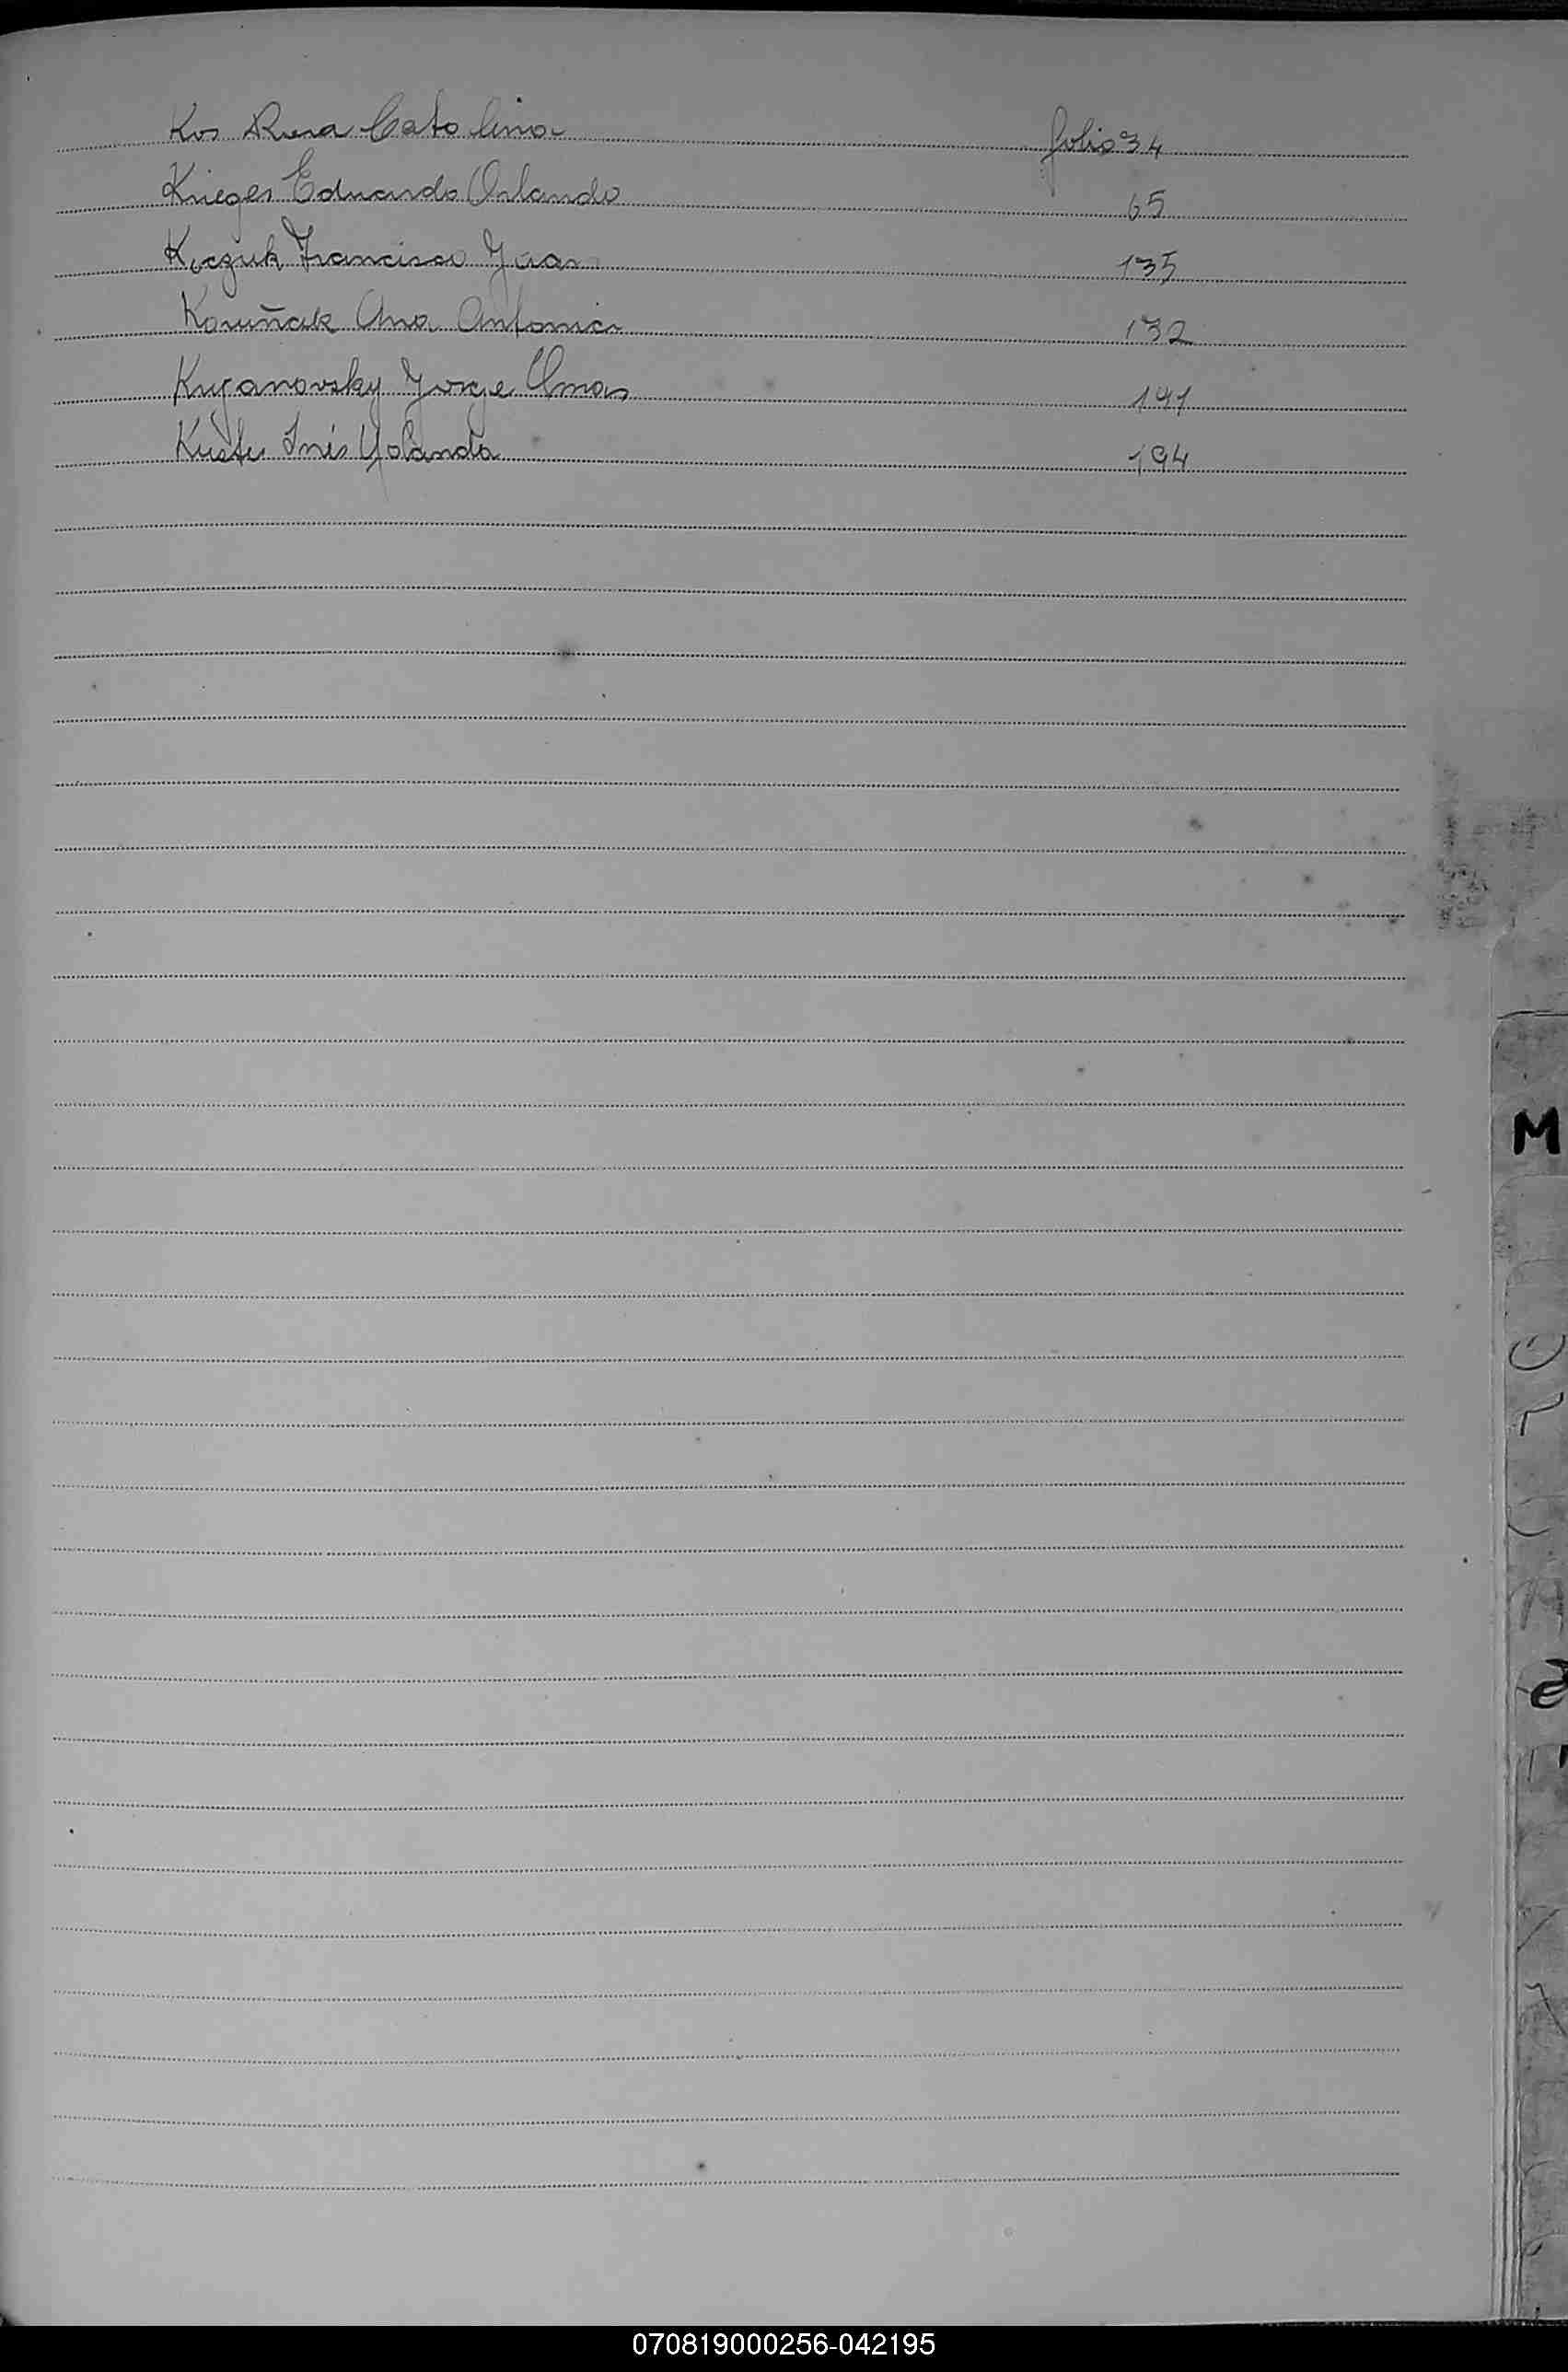 Kos Rosa Catalina folio 34
Krieger Eduardo Orlando 65
Koczuk Francisco Juan 135
Koruñak Ana Antonia 132
Kujanovsky Jorge Omar 191
Kuster Inés Yolanda 194
M
070819000256-042195